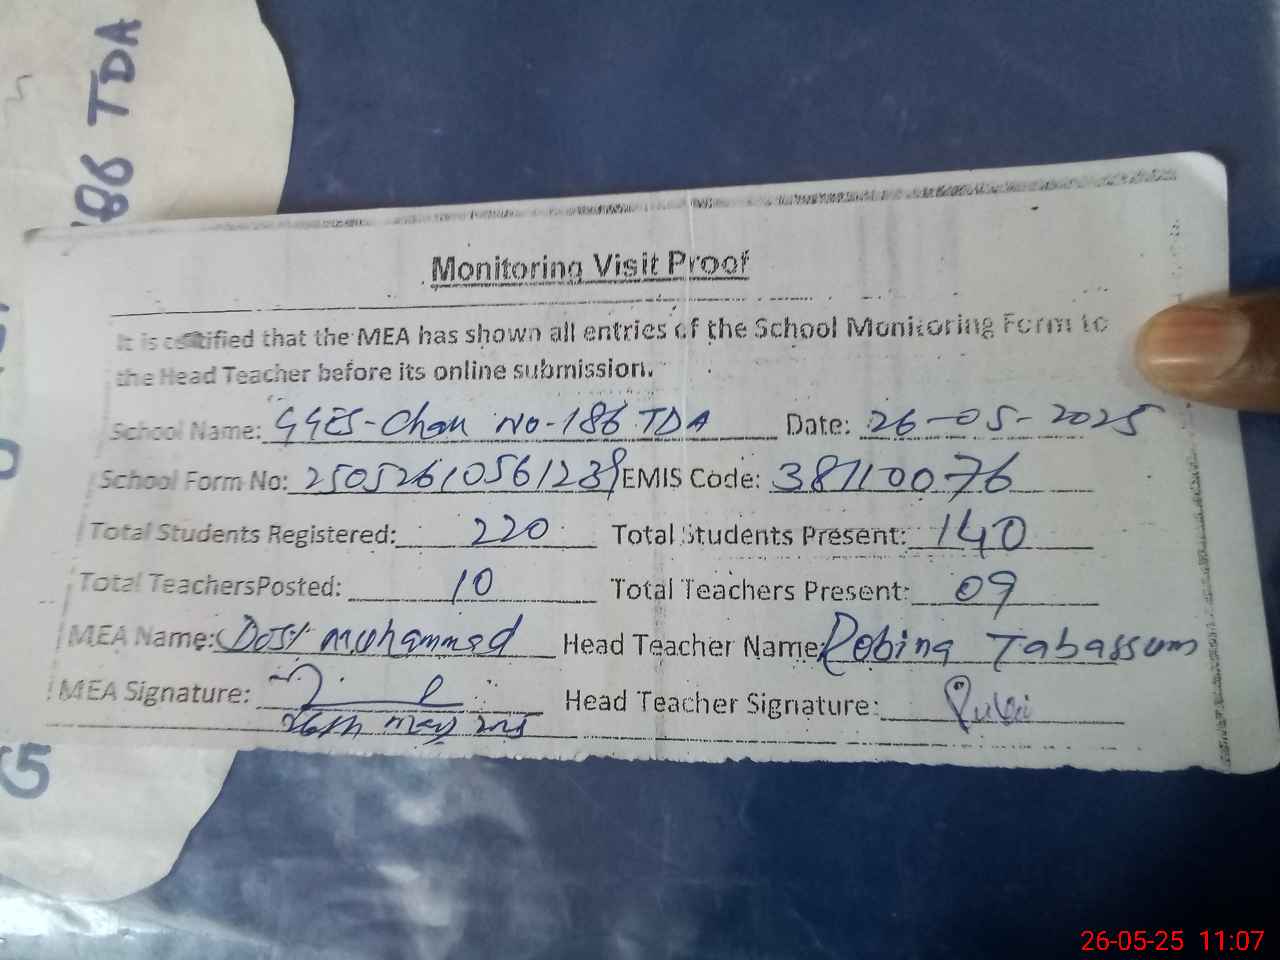 186 TDA
Monitoring Visit Proof
It is certified that the MEA has shown all entries of the School Monitoring Form to
the Head Teacher before its online submission.
School Name: GGES-Chak No-186 TDA Date: 26-05-2025
School Form No: 250526105612389 EMIS Code: 38110076
Total Students Registered: 220 Total Students Present: 140
Total TeachersPosted: 10 Total Teachers Present: 09
MEA Name: Dost Muhammed Head Teacher Name: Robina Tabassum
MEA Signature: Head Teacher Signature:
26th may
26-05-25 11:07